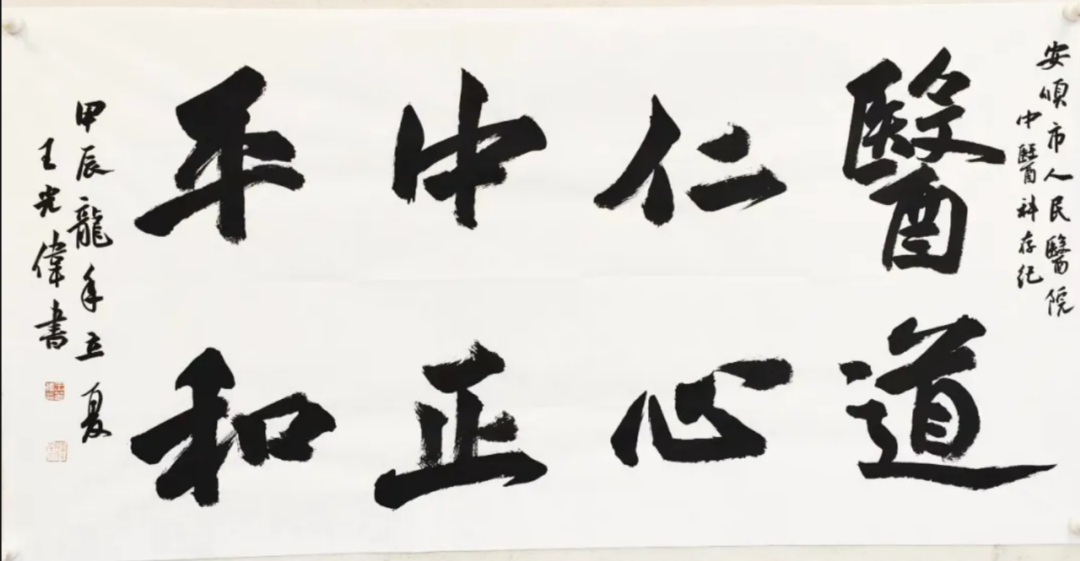 安順市人民醫院
中醫科存纪
醫道
仁心
中正
平和
甲辰龍年立夏
王光偉書